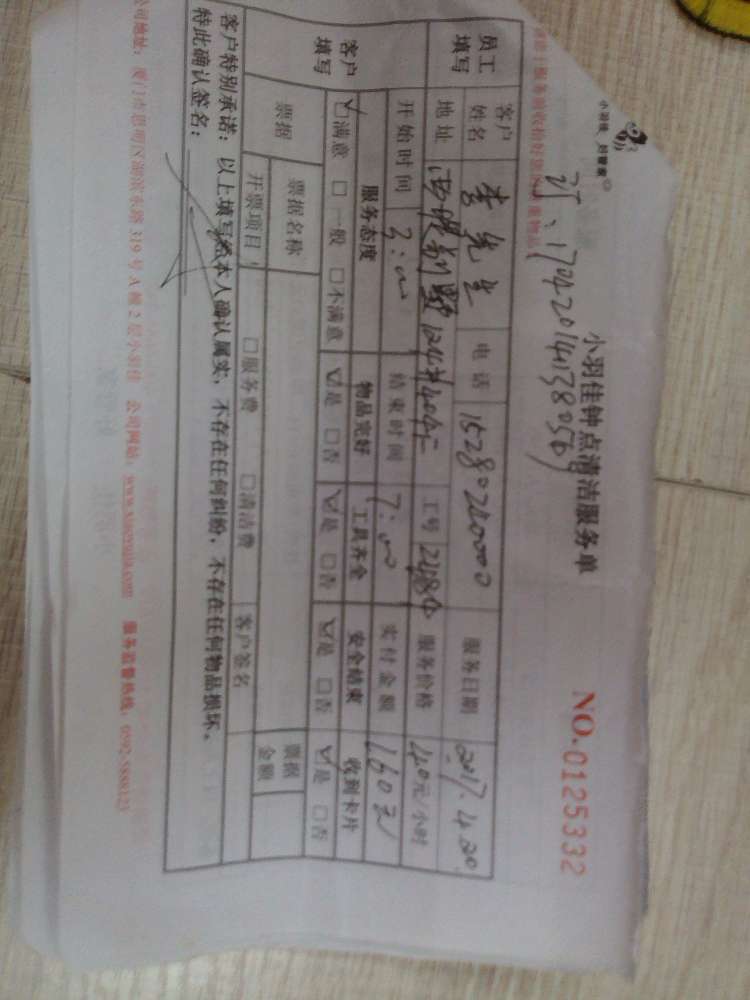 小羽佳 好管家
小羽佳钟点清洁服务单
NO.0125332
员工填写 客户姓名 李先生 电话 15280240000 服务日期 2017.4.20
地址 124#404 工号 2484 服务价格 40元/小时
开始时间 3:00 结束时间 7:00 实付金额 160元
客户填写 服务态度 物品完好 工具齐全 安全结束 收到卡片
☑满意 □一般 □不满意 ☑是 □否 ☑是 □否 ☑是 □否 ☑是 □否
票据 票据名称 票据金额
开票项目: □服务费 □清洁费 客户签名
客户特别承诺:以上填写经本人确认属实,不存在任何纠纷,不存在任何物品损坏。
特此确认签名:
公司地址:厦门市思明区湖滨东路319号A幢2层小羽佳 公司网站:www.xiaoyujia.com 服务监督热线:0592-5888123